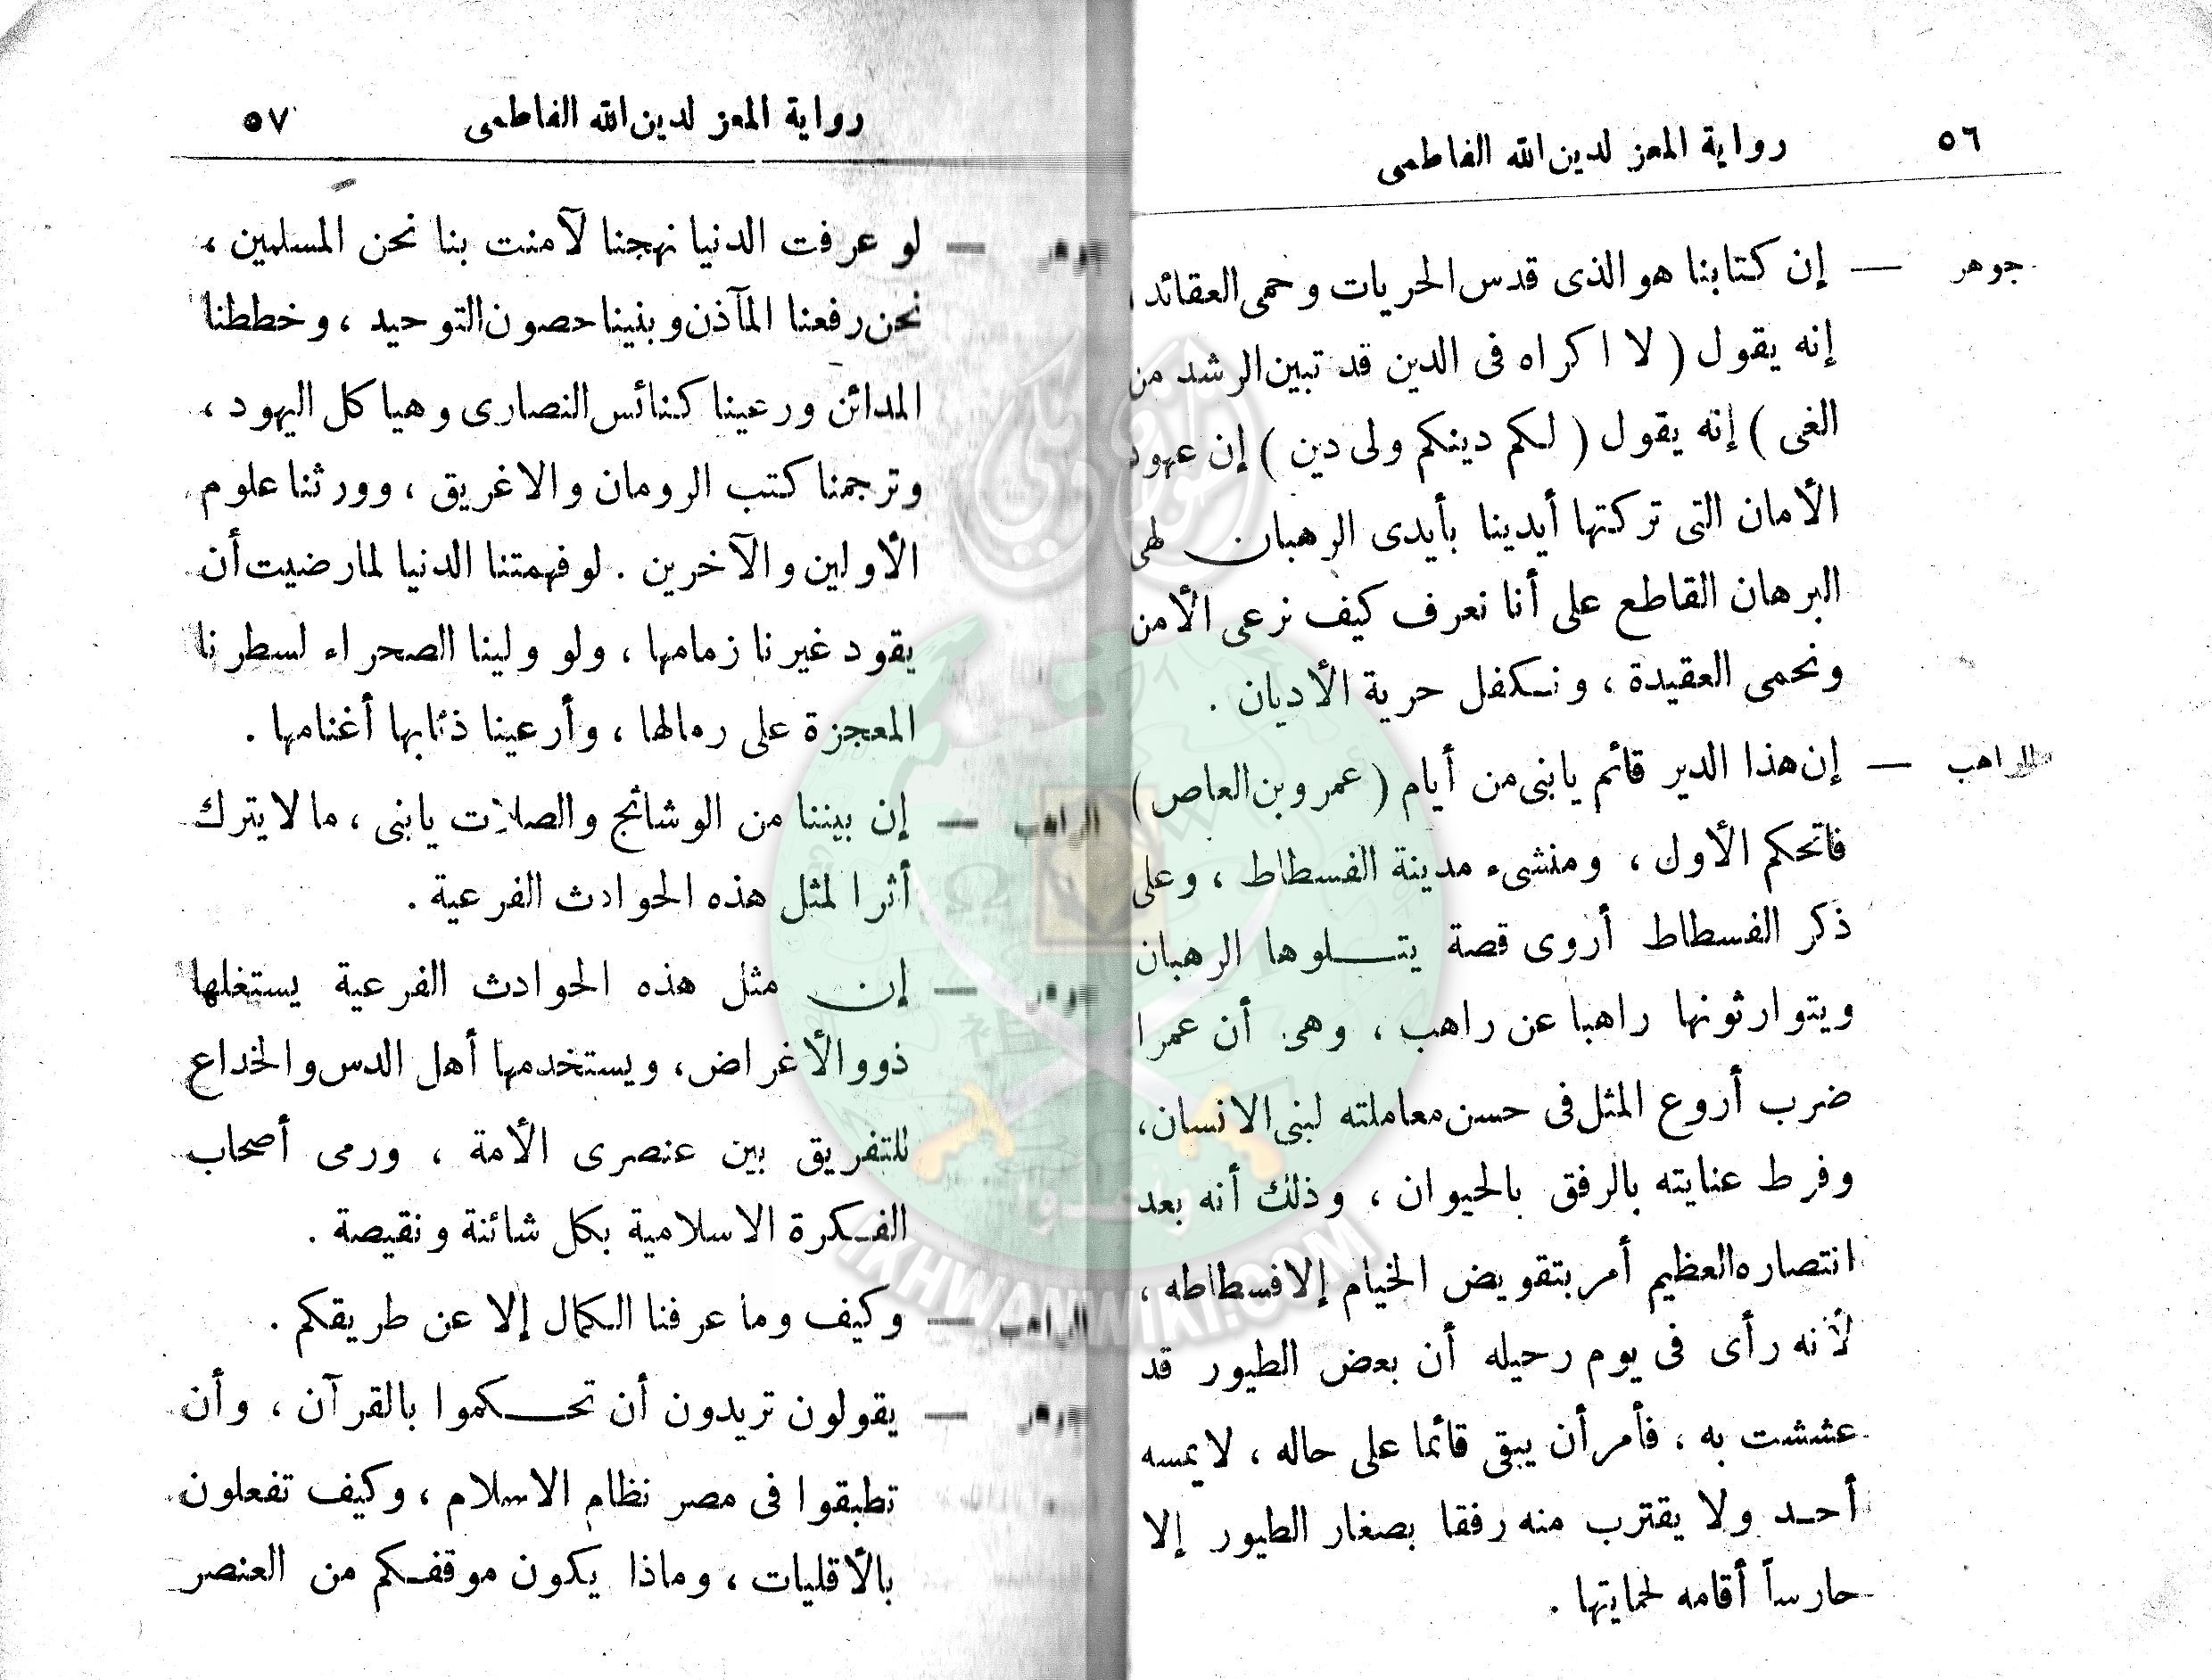 ٥٦ رواية المعز لدين الله الفاطمى
جوهر — إن كتابنا هو الذى قدس الحريات وحمى العقائد
إنه يقول ( لا اكراه فى الدين قد تبين الرشد من
الغى ) إنه يقول ( لكم دينكم ولى دين ) إن عهود
الأمان التى تركتها أيدينا بأيدى الرهبان لهى
البرهان القاطع على أنا نعرف كيف نرعى الأمن
ونحمى العقيدة ، ونكفل حرية الأديان .
الراهب — إن هذا الدير قائم يابنى من أيام ( عمرو بن العاص )
فاتحكم الأول ، ومنشىء مدينة الفسطاط ، وعلى
ذكر الفسطاط أروى قصة يتلوها الرهبان
ويتوارثونها راهبا عن راهب ، وهى أن عمرا
ضرب أروع المثل فى حسن معاملته لبنى الانسان ،
وفرط عنايته بالرفق بالحيوان ، وذلك أنه بعد
انتصاره العظيم أمر بتقويض الخيام إلا فسطاطه ،
لأنه رأى فى يوم رحيله أن بعض الطيور قد
عششت به ، فأمر أن يبقى قائما على حاله ، لا يمسه
أحد ولا يقترب منه رفقا بصغار الطيور إلا
حارساً أقامه لحمايتها .
رواية المعز لدين الله الفاطمى ٥٧
جوهر — لو عرفت الدنيا نهجنا لآمنت بنا نحن المسلمين ،
نحن رفعنا المآذن وبنينا حصون التوحيد ، وخططنا
المدائن ورعينا كنائس النصارى وهياكل اليهود ،
وترجمنا كتب الرومان والاغريق ، وورثنا علوم
الأولين والآخرين . لو فهمتنا الدنيا لما رضيت أن
يقود غيرنا زمامها ، ولو ولينا الصحراء لسطرنا
المعجزة على رمالها ، وأرعينا ذئابها أغنامها .
الراهب — إن بيننا من الوشائج والصلات يابنى ، ما لا يترك
أثرا لمثل هذه الحوادث الفرعية .
جوهر — إن مثل هذه الحوادث الفرعية يستغلها
ذوو الأغراض ، ويستخدمها أهل الدس والخداع
للتفريق بين عنصرى الأمة ، ورمى أصحاب
الفكرة الاسلامية بكل شائنة ونقيصة .
الراهب — وكيف وما عرفنا الكمال إلا عن طريقكم .
جوهر — يقولون تريدون أن تحكموا بالقرآن ، وأن
تطبقوا فى مصر نظام الاسلام ، وكيف تفعلون
بالأقليات ، وماذا يكون موقفكم من العنصر
IKHWANWIKI.COM